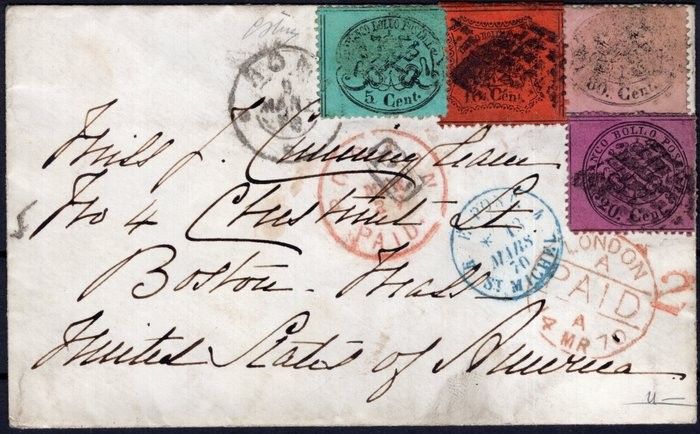 FRANCO BOLLO PONTIFICIO
5 Cent.
10 Cent.
80 Cent.
FRANCO BOLLO PON
20 Cent.
ROMA
MAR
PD
Miss J. Cunningham
No 4 Chestnut St.
Boston. Mass
United States of America
PAID
MARS
70
ST MICHEL
LONDON
A
PAID
A
MR 70
2